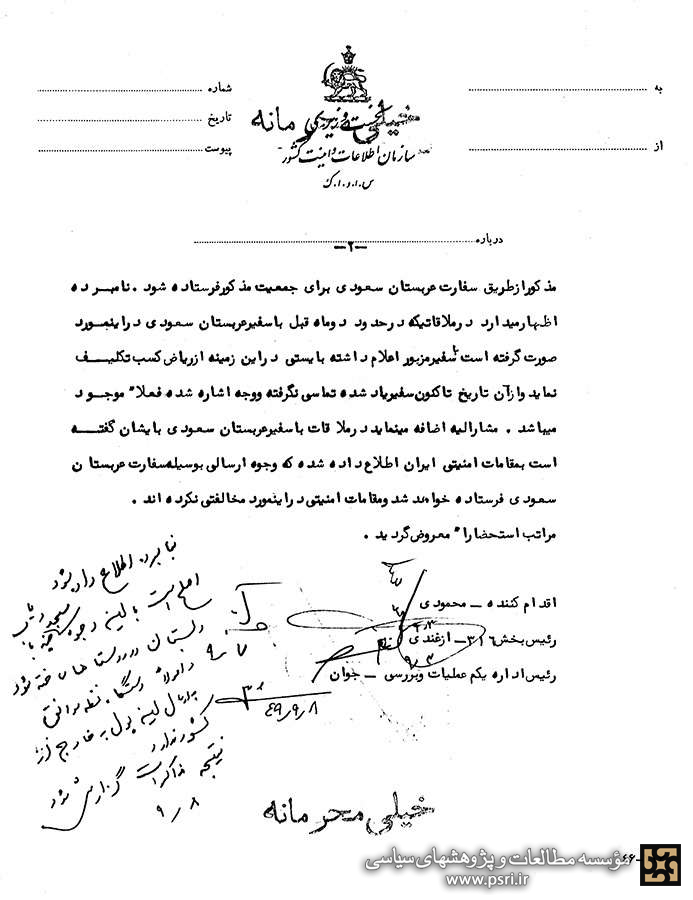 به
شماره
خیلی محرمانه
نخست وزیری
تاریخ
سازمان اطلاعات و امنیت کشور
از
پیوست
س.ا.و.ا.ک
درباره
-۲-
مذکور ازطریق سفارت عربستان سعودی برای جمعیت مذکور فرستاده شود . نامبرده
اظهارمیدارد درملاقاتیکه درحدود دوماه قبل باسفیرعربستان سعودی دراینمورد
صورت گرفته است سفیرمزبور اعلام داشته بایستی دراین زمینه ازریاض کسب تکلیف
نماید وازآن تاریخ تاکنون سفیریاد شده تماسی نگرفته ووجه اشاره شده فعلا" موجود
میباشد . مشارالیه اضافه مینماید درملاقات باسفیرعربستان سعودی بایشان گفته
است بمقامات امنیتی ایران اطلاع داده شده که وجوه ارسالی بوسیله سفارت عربستان
سعودی فرستاده خواهد شد ومقامات امنیتی دراینمورد مخالفتی نکرده اند .
مراتب استحضارا" معروض گردید .
اقدام کننده - محمودی
رئیس بخش ۳۱۶ - ازغندی
۹٫۳
رئیس اداره یکم عملیات وبررسی - جوان
۴۹٫۹٫۸
اطلاع داد شود
اصلح است با این وجوه
دبستان در روستاها ساخته شود
ارسال این پول به خارج از
کشور ندارد
نتیجه مذاکرات گزارش شود
۹٫۸
خیلی محرمانه
۶۶-
مؤسسه مطالعات و پژوهشهای سیاسی
www.psri.ir